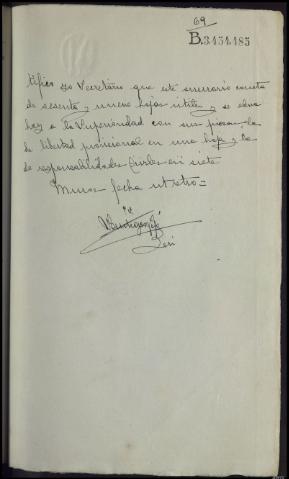 69
B.3.454.485
tifico yo Secretario que este sumario consta
de sesenta y nueve hojas utiles y se eleva
hoy a la Superioridad con sus piezas la
de libertad provisional en una hoja y la
de responsabilidades Civiles en siete
fecha ut retro=